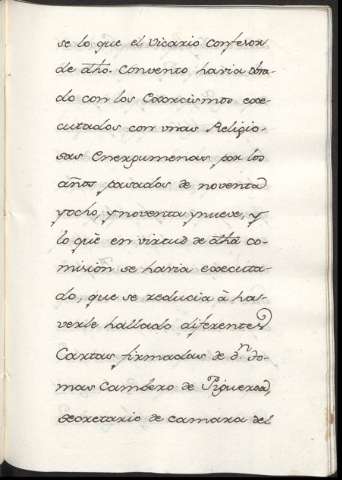 se lo que el Vicario Confesor
de dho. Convento havia obra-
do con los Exorcismos exe-
cutados con unas Religio-
sas Energumenas por los
años pasados de noventa
y ocho, y noventa y nueve, y
lo qe. en virtud de dha co-
mision se havia executa-
do, que se reducia à ha-
verse hallado diferentes
Cartas firmadas de dn. To-
mas Cambero de Figueroa,
secretario de camara del